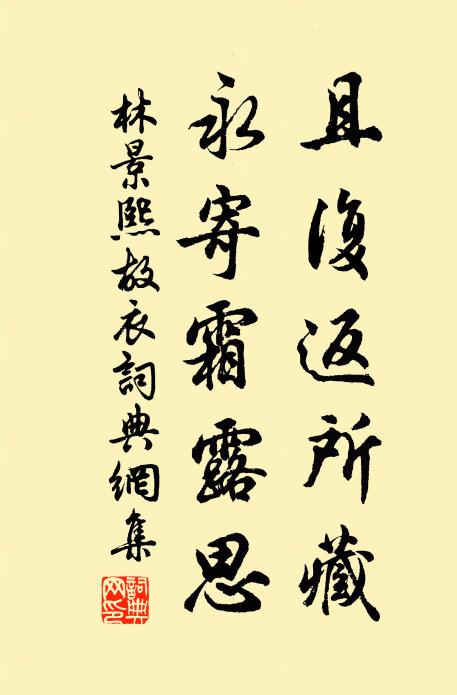 且復返所藏
永寄霜露思
林景熙故衣詞典網集
詞典網印